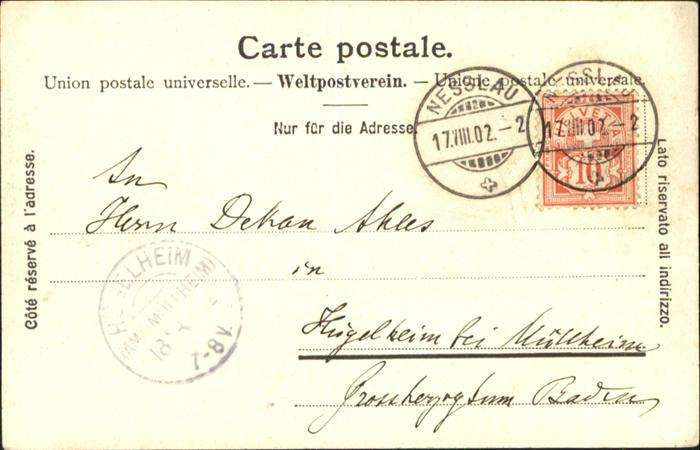 Carte postale.
Union postale universelle. — Weltpostverein. — Unione postale universale.
Nur für die Adresse.
NESSLAU
17.VIII.02.–2
NESSL
17.VIII.02.–2
HELVETIA
10
Côté réservé à l'adresse.
Lato riservato all indirizzo.
An
Herrn Dekan Ahles
in
Hügelheim bei Müllheim
Grossherzogtum Baden
HÜGELHEIM
(AMT MÜLLHEIM)
18
7-8V.